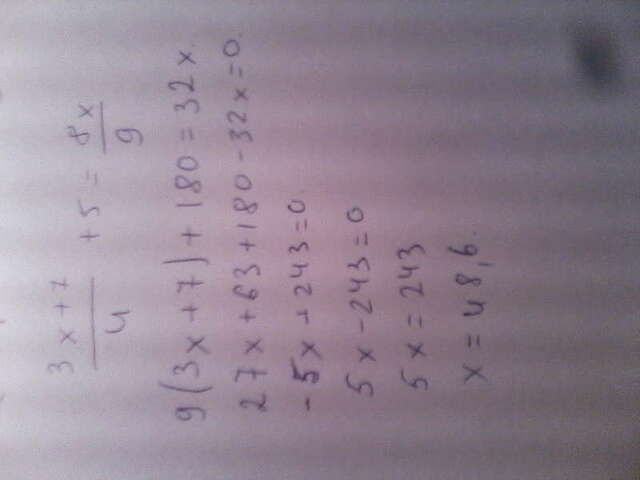 3x+7/4 + 5 = 8x/9
9(3x+7)+180=32x.
27x+63+180-32x=0.
-5x+243=0.
5x-243=0
5x=243
x=48,6.